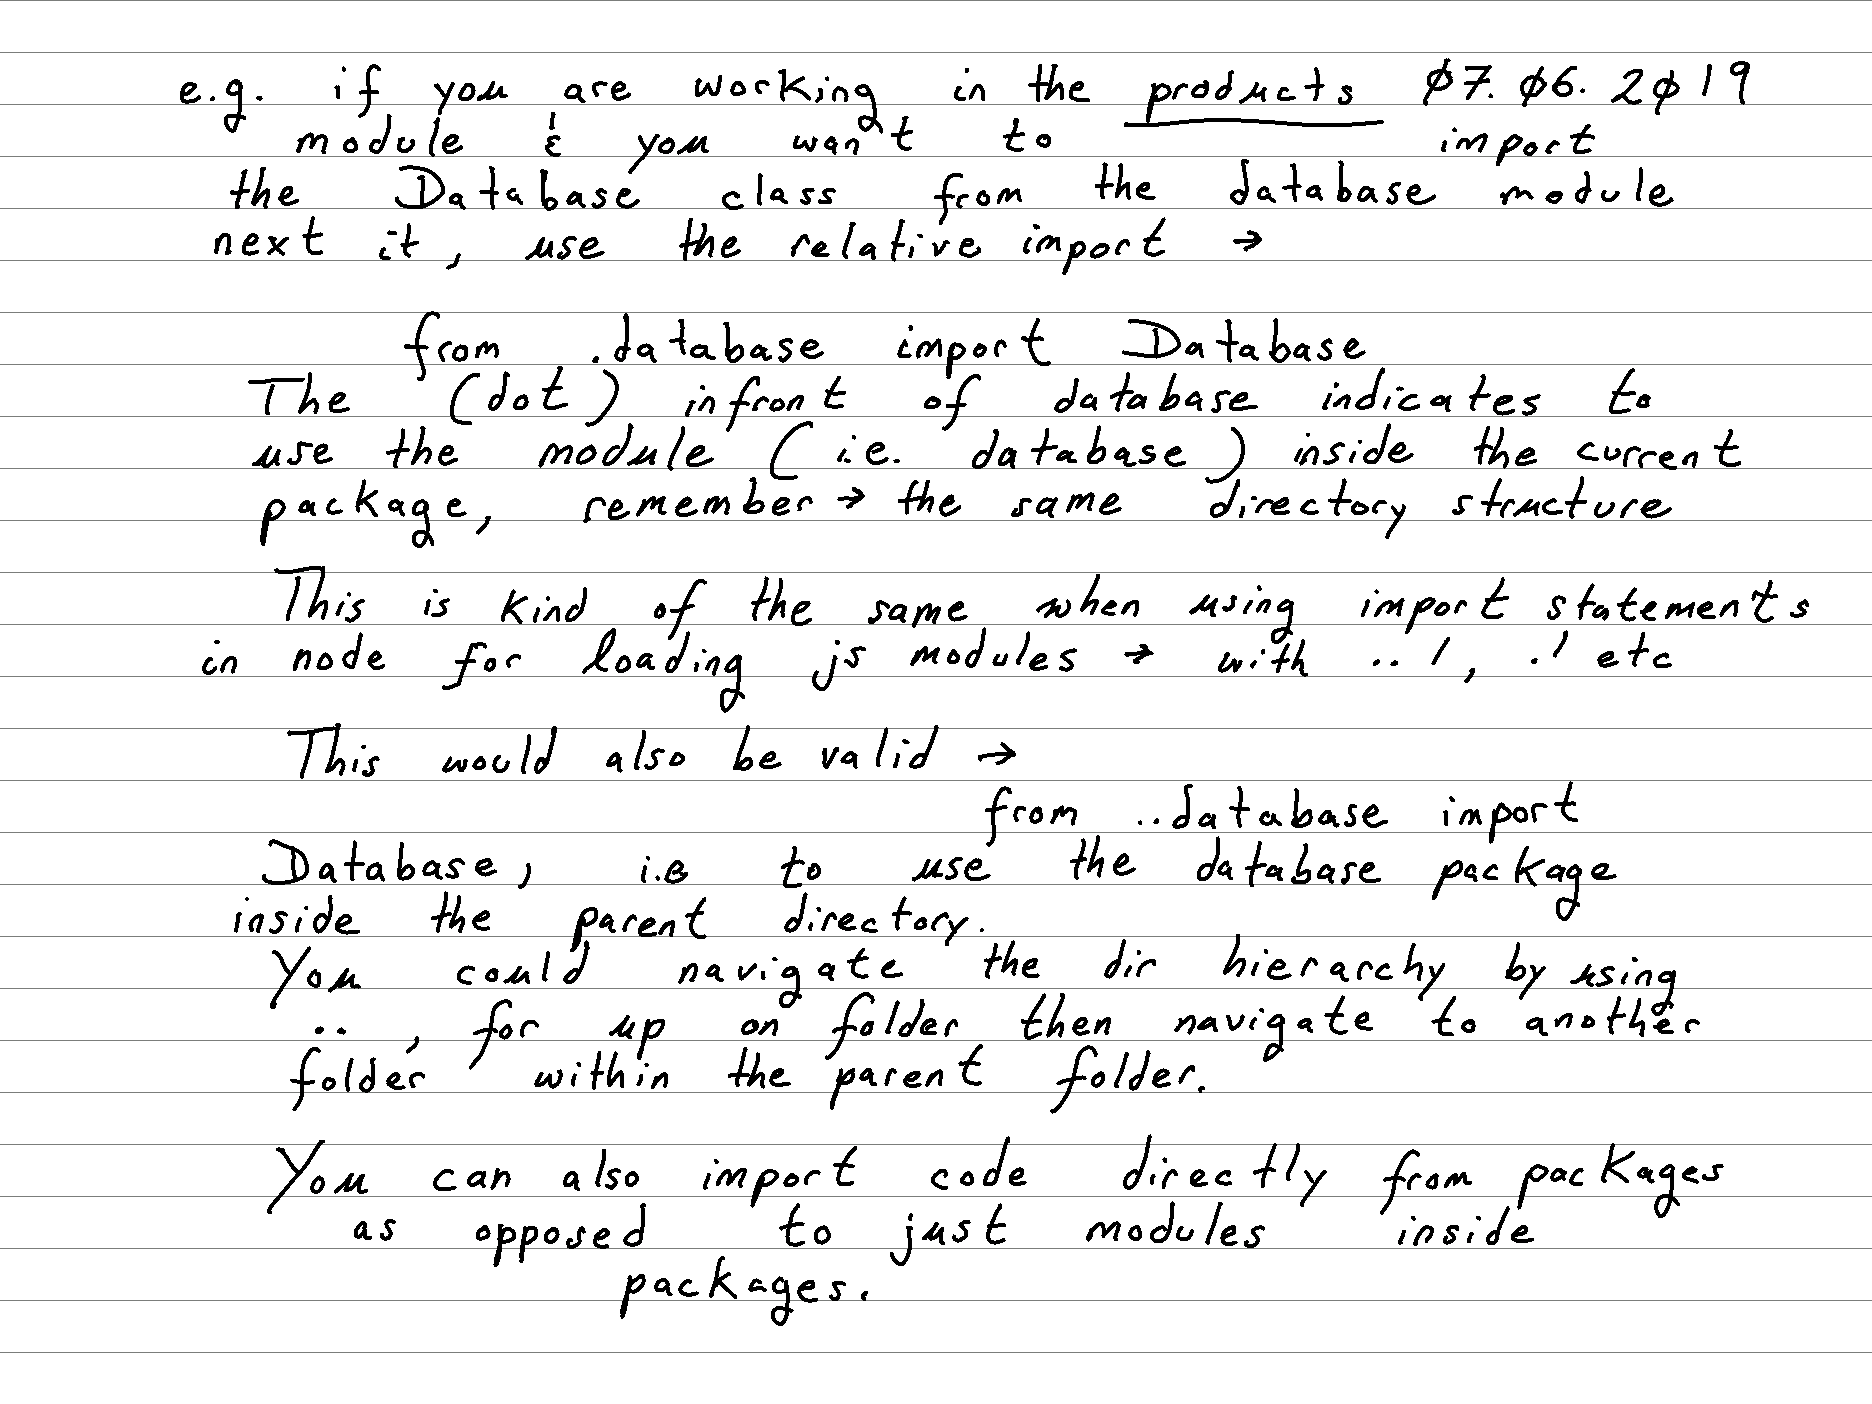 e.g. if you are working in the products 07.06.2019
module & you want to import
the Database class from the database module
next it, use the relative import →
from .database import Database
The (dot) infront of database indicates to
use the module (i.e. database) inside the current
package, remember → the same directory structure
This is kind of the same when using import statements
in node for loading js modules → with ../, ./ etc
This would also be valid →
from ..database import
Database, i.e to use the database package
inside the parent directory.
You could navigate the dir hierarchy by using
.., for up on folder then navigate to another
folder within the parent folder.
You can also import code directly from packages
as opposed to just modules inside
packages.